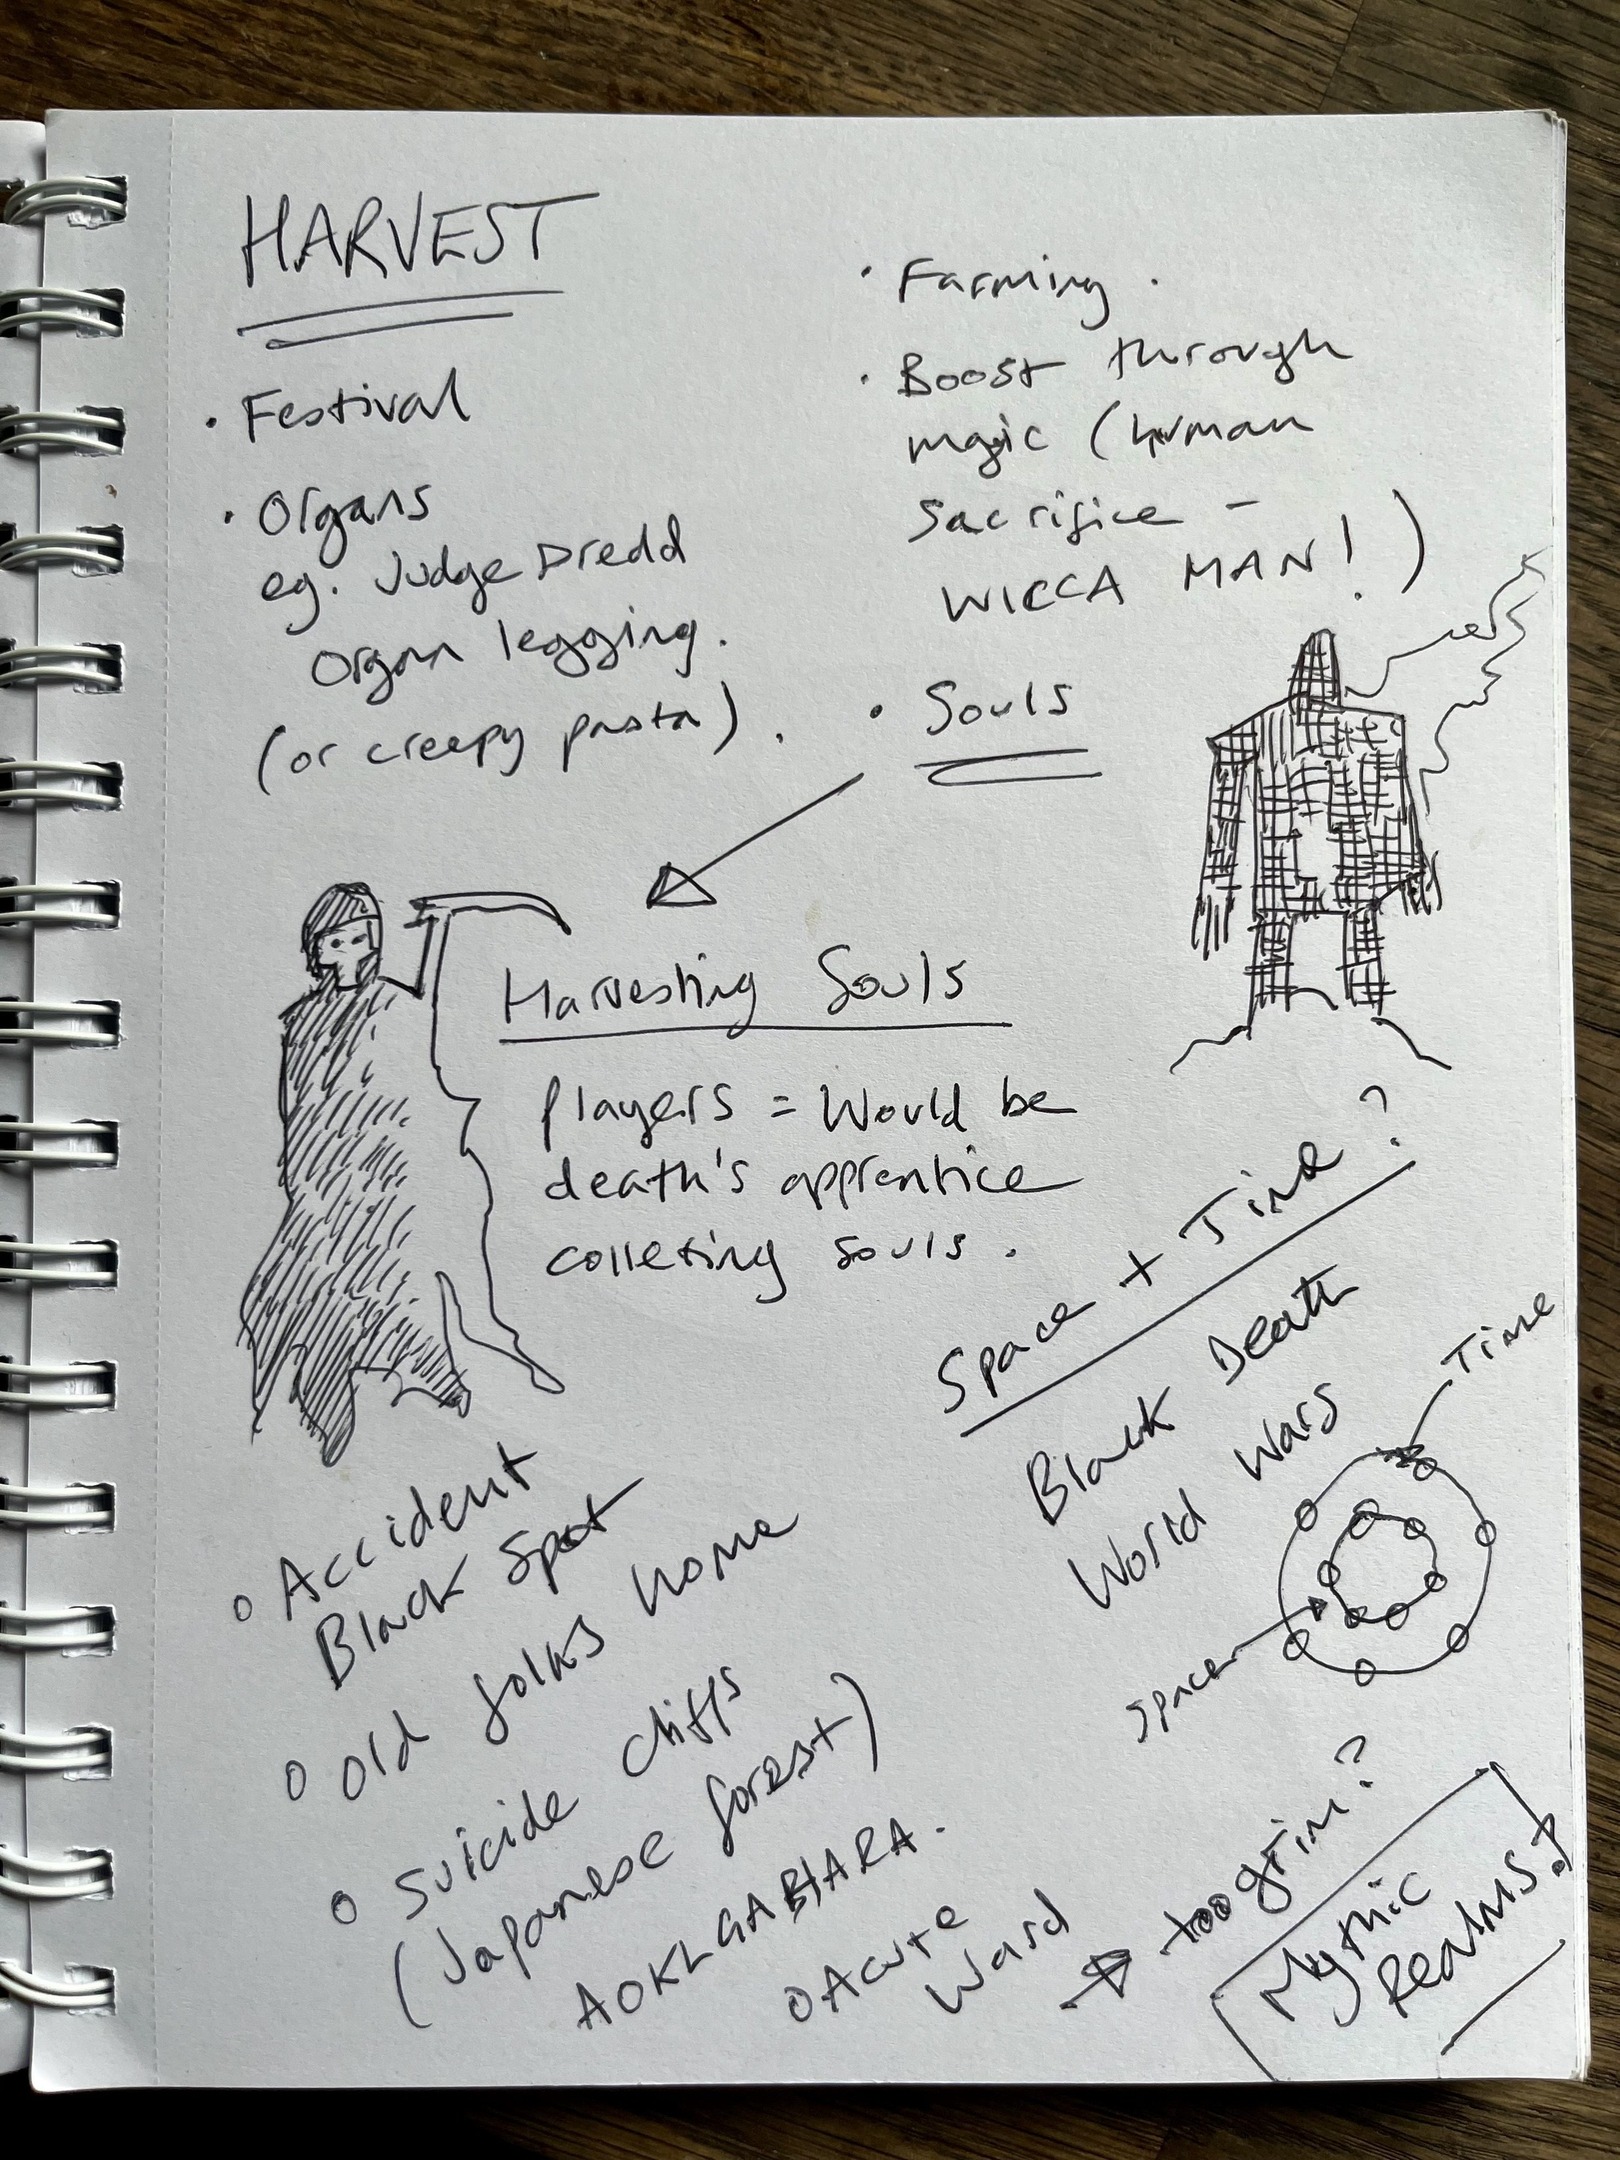 HARVEST
· Festival
· Organs
eg. Judge Dredd
Organ legging.
(or creepy pasta).
· Farming.
· Boost through
magic (human
sacrifice -
WICCA MAN!)
· Souls
Harvesting Souls
Players = Would be
death's apprentice
colleting souls.
Space + Time?
Black Death
World Wars
Time
Space
o Accident
Black Spot
o Old folks home
o Suicide Cliffs
(Japanese forest)
AOKIGAHARA.
o Acute
Ward
too grim?
Mythic
Realms!